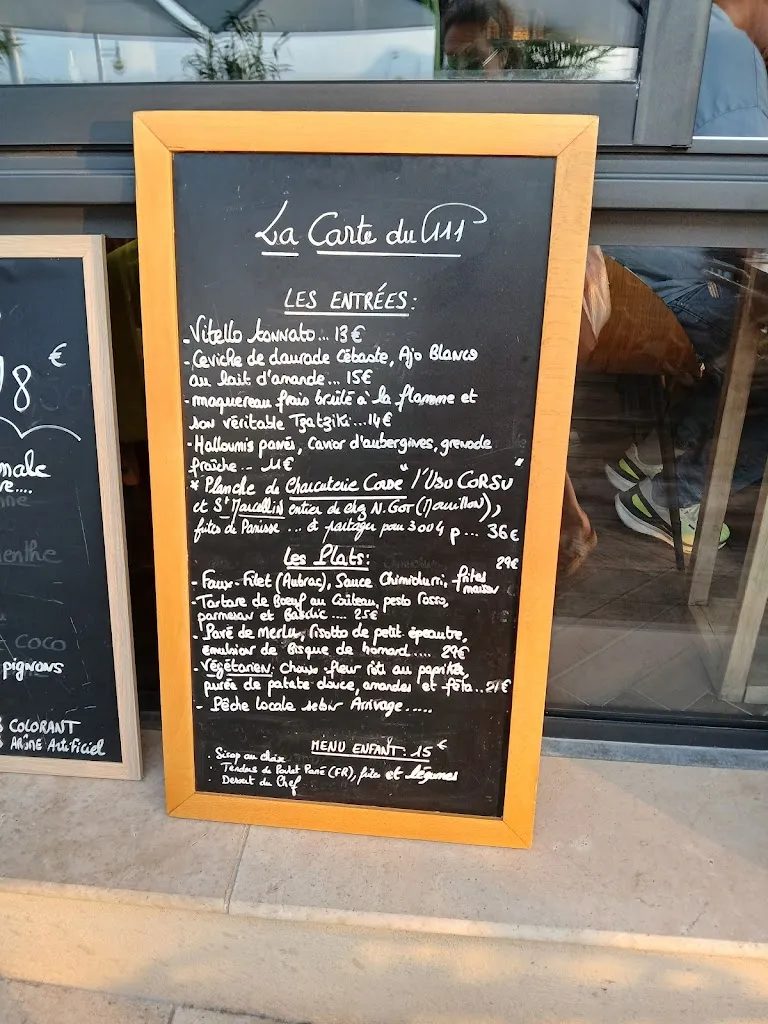 La Carte du 111
LES ENTRÉES:
- Vitello tonnato... 13€
- Ceviche de daurade Cébaste, Ajo Blanco
au lait d'amande... 15€
- maquereau frais brulé à la flamme et
son véritable Tzatziki...14€
- Halloumis panés, Caviar d'aubergines, grenade
fraîche... 11€
* Planche de Charcuterie Corse "l'USU CORSU"
et St Marcellin entier de chez N. Got (Mouillon),
frites de Panisse ... à partager pour 3 ou 4 p... 36€
Les Plats:
29€
- Faux-Filet (Aubrac), Sauce Chimichurri, frites
maison
- Tartare de Boeuf au Couteau, pesto rosso,
parmesan et Basilic .... 25€
- Pavé de Merlu, risotto de petit épeautre,
émulsion de Bisque de homard .... 29€
- Végétarien: Choux-fleur roti au paprika,
purée de patate douce, amandes et féta...21€
- Pêche locale selon Arrivage.....
MENU ENFANT: 15€
. Sirop au choix
. Tenders de Poulet Pané (FR), frites et légumes
. Dessert du Chef
€
8
male
menthe
COCO
pignons
COLORANT
ARÔME Artificiel